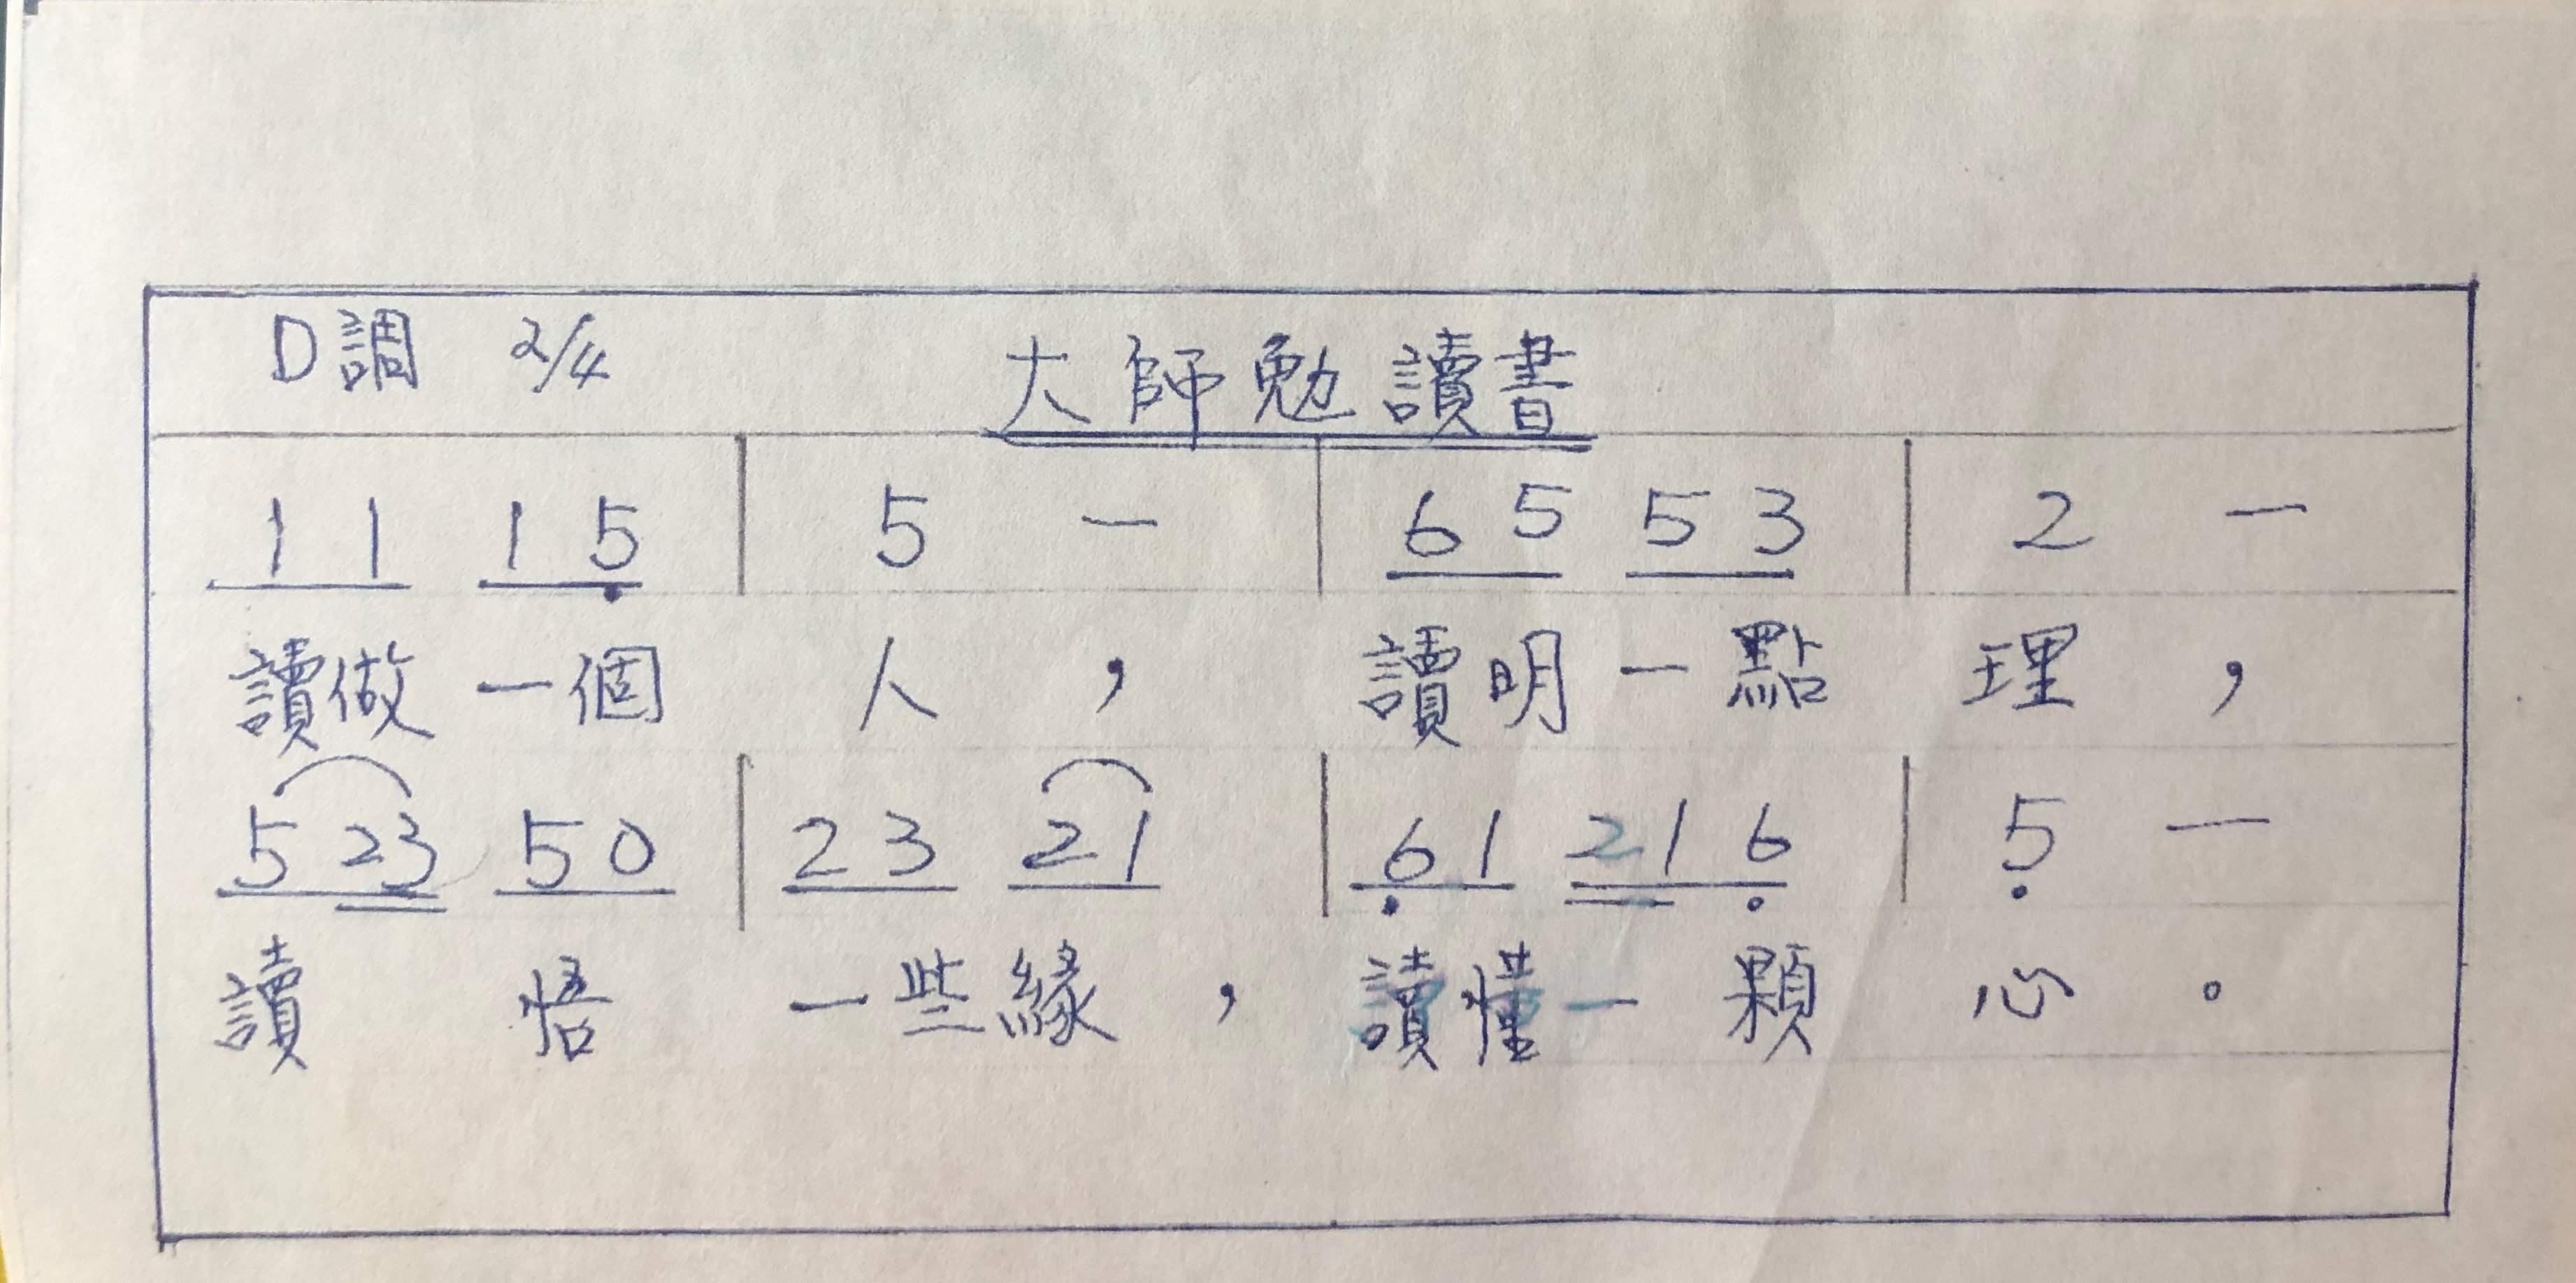 D調 2/4 大師勉讀書
1 1 1 5̣ | 5 － | 6 5 5 3 | 2 －
讀做一個 人 , 讀明一點 理 ,
5 23 5 0 | 2 3 2 1 | 6̣ 1 2 1 6̣ | 5̣ －
讀 悟 一些緣 , 讀懂一 顆 心 。